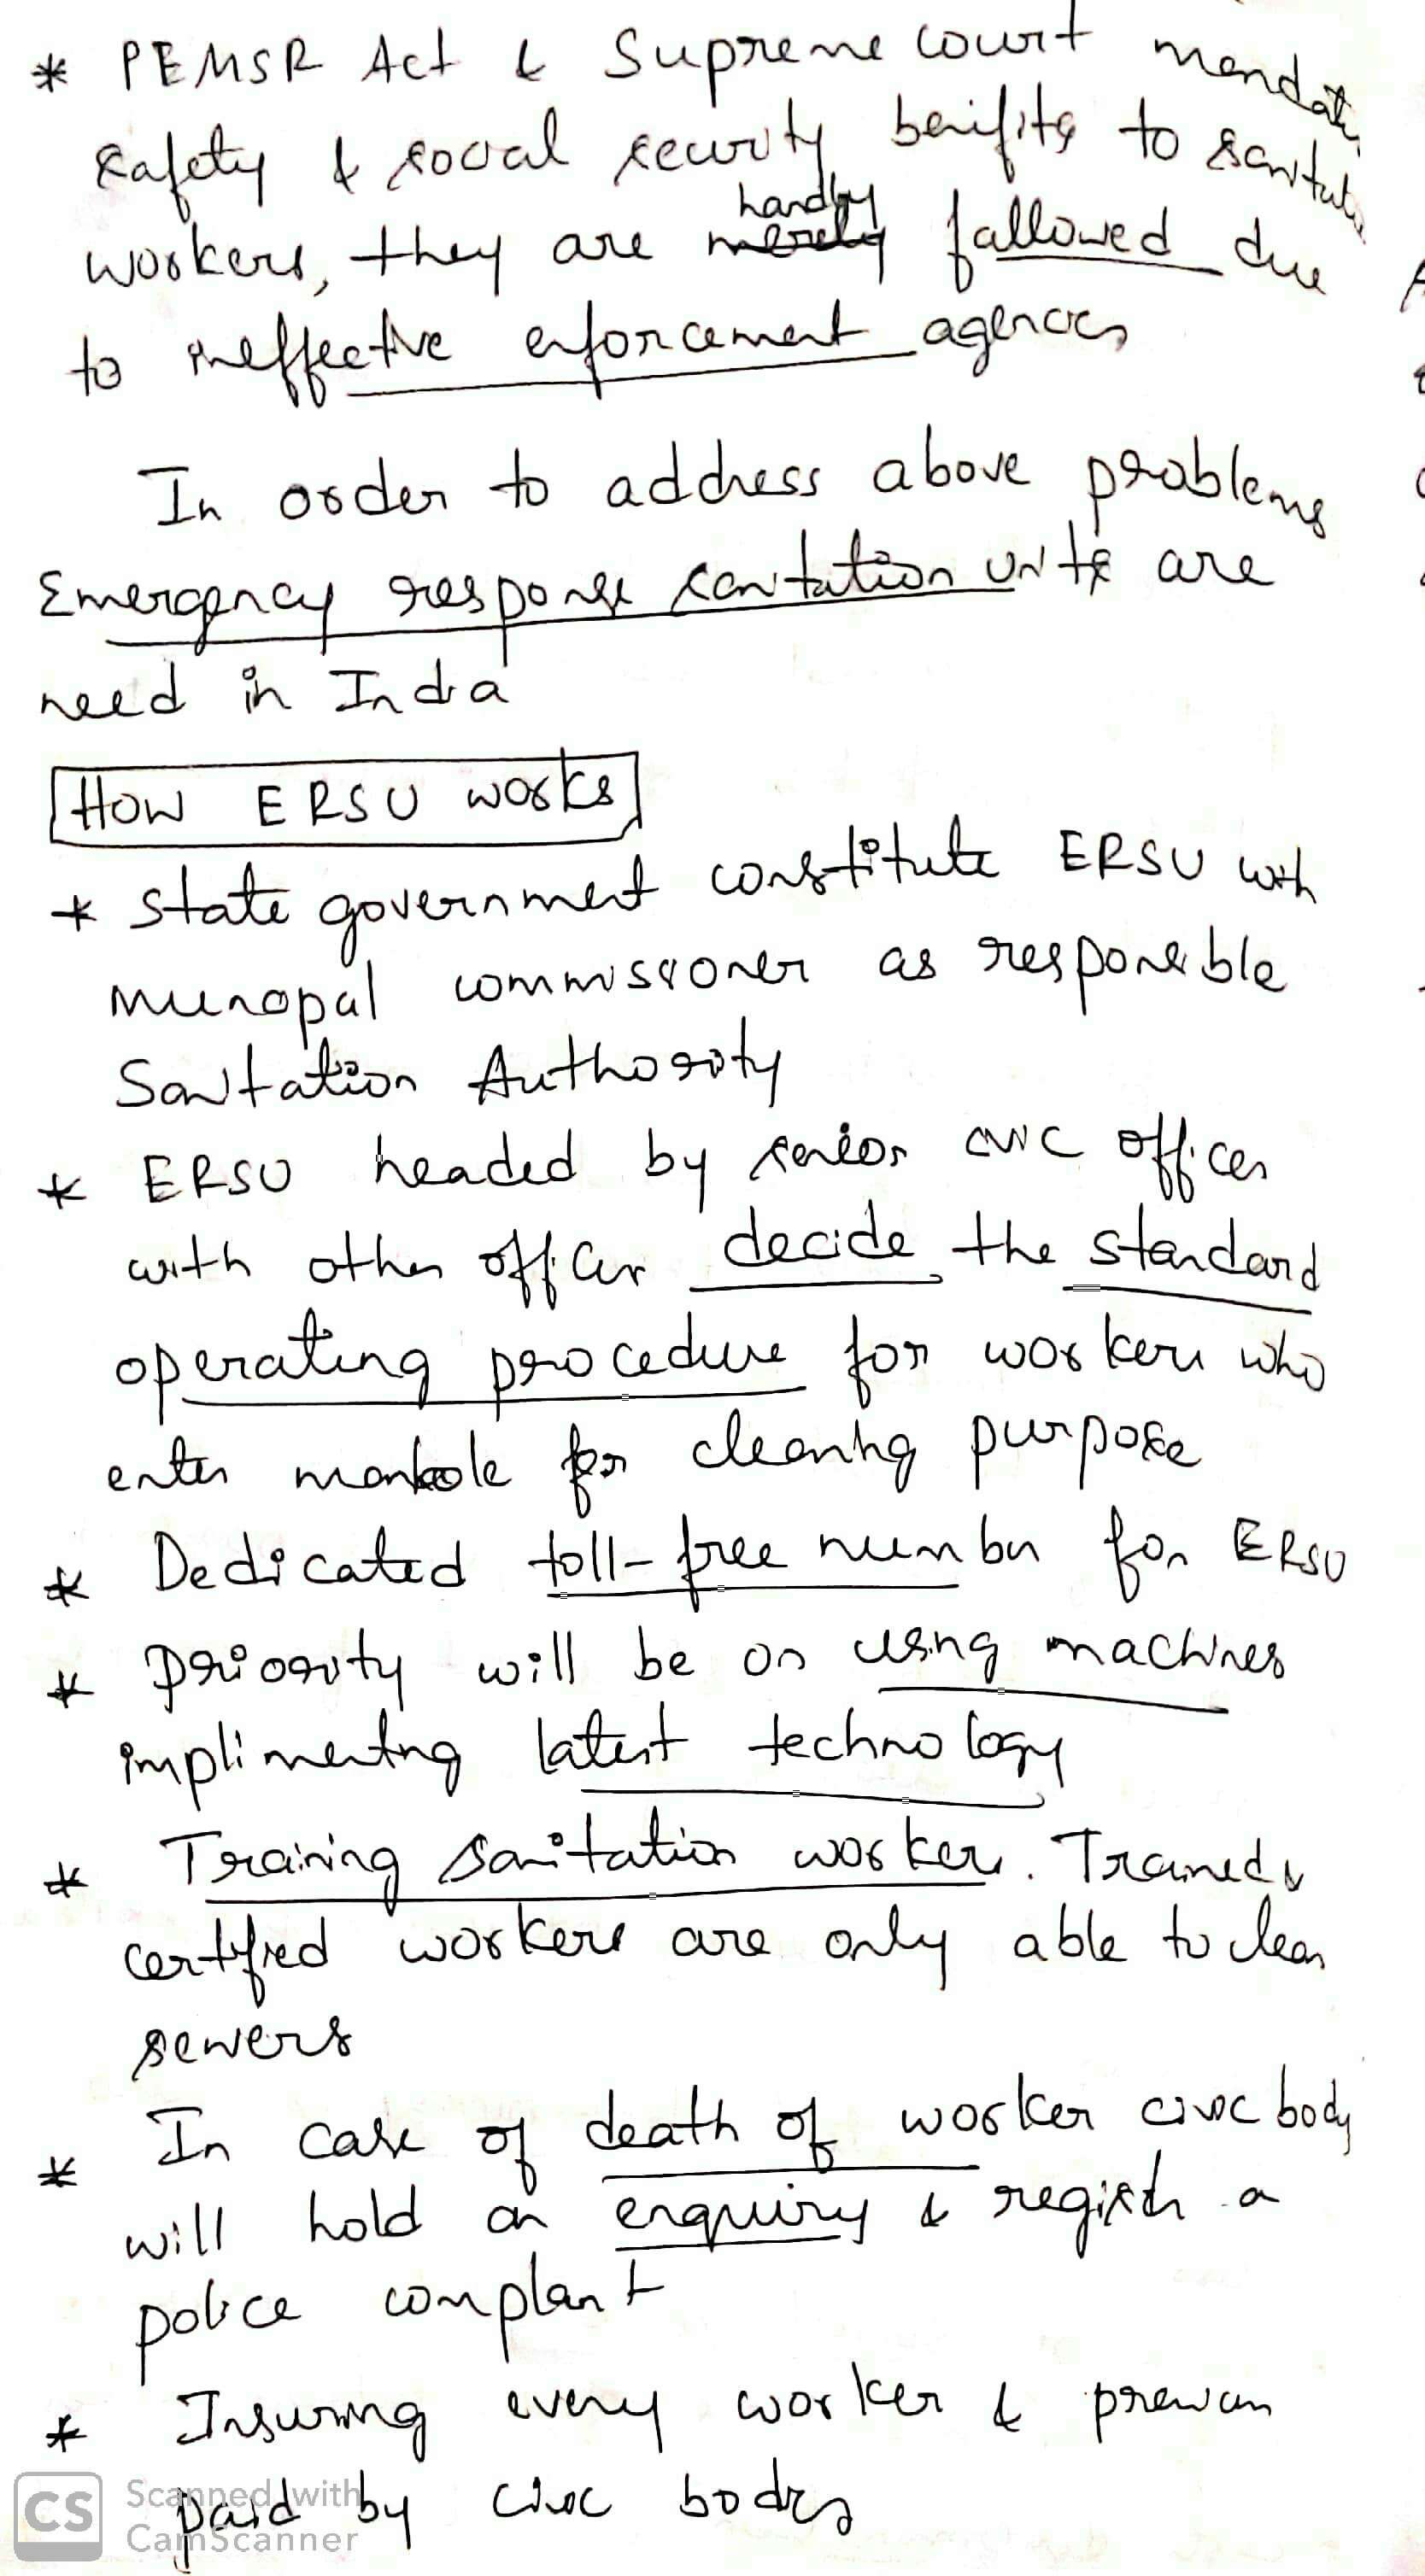 * PEMSR Act & Supreme court mandate
safety & social security benifits to sanitation
workers, they are merely hardly fallowed due
to ineffective enforcement agencies
In order to address above problems
Emergency response sanitation units are
need in India
How ERSU works
* state government constitute ERSU with
municipal commissioner as responsible
Sanitation Authority
* ERSU headed by senior civic officer
with other officer decide the standard
operating procedure for workers who
enter manhole for cleaning purpose
* Dedicated toll-free number for ERSU
* Priority will be on using machines
implimenting latest technology
* Training sanitation workers. Trained &
certified workers are only able to clean
sewers
* In case of death of worker civic body
will hold an enquiry & register a
police complaint
* Insuring every worker &
paid by civic bodies
CS Scanned with
CamScanner